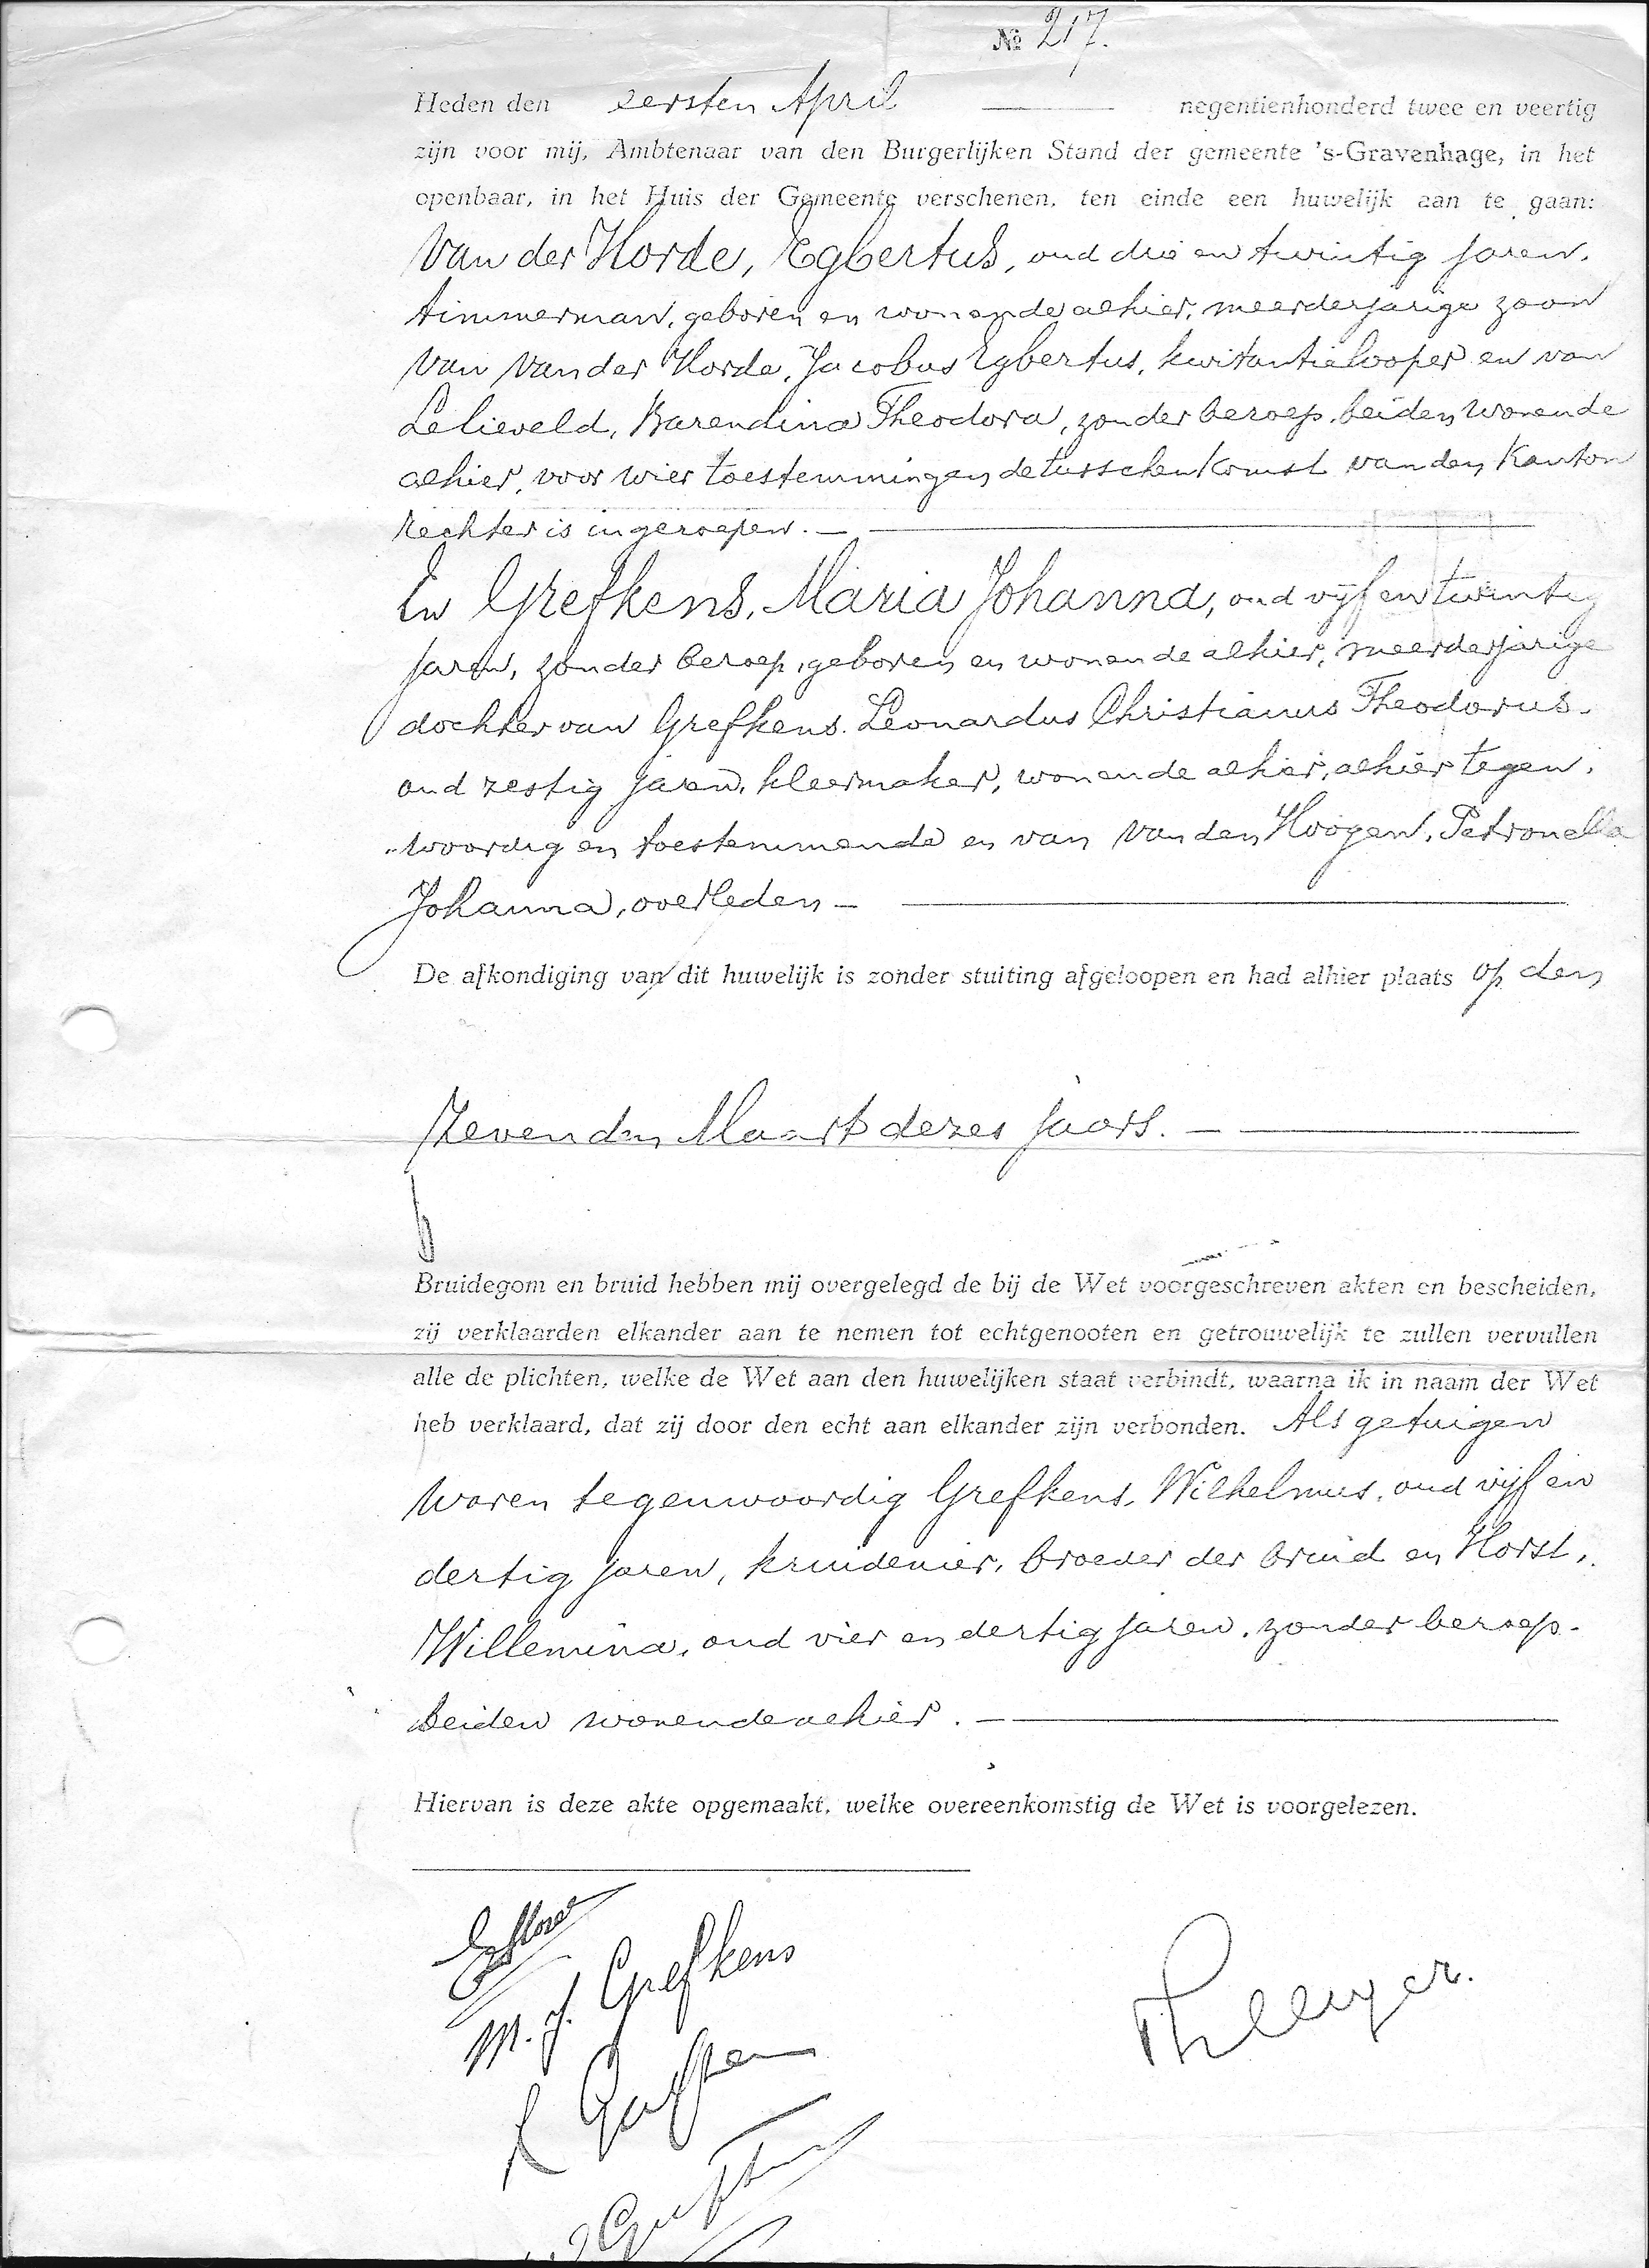 № 217.
Heden den eersten April negentienhonderd twee en veertig
zijn voor mij, Ambtenaar van den Burgerlijken Stand der gemeente 's-Gravenhage, in het
openbaar, in het Huis der Gemeente verschenen, ten einde een huwelijk aan te gaan:
Van der Horde, Egbertus, oud drie en twintig jaren,
timmerman, geboren en wonende alhier, meerderjarige zoon
van Van der Horde, Jacobus Egbertus, kwitantielooper en van
Lelieveld, Barendina Theodora, zonder beroep, beiden wonende
alhier, voor wier toestemmingen de tusschenkomst van den Kanton
rechter is ingeroepen. —
En Grefkens, Maria Johanna, oud vijf en twintig
jaren, zonder beroep, geboren en wonende alhier, meerderjarige
dochter van Grefkens, Leonardus Christianus Theodorus,
oud zestig jaren, kleermaker, wonende alhier, alhier tegen-
woordig en toestemmende en van Van den Hoogen, Petronella
Johanna, overleden —
De afkondiging van dit huwelijk is zonder stuiting afgeloopen en had alhier plaats op den
Zevenden Maart dezes jaars. —
Bruidegom en bruid hebben mij overgelegd de bij de Wet voorgeschreven akten en bescheiden,
zij verklaarden elkander aan te nemen tot echtgenooten en getrouwelijk te zullen vervullen
alle de plichten, welke de Wet aan den huwelijken staat verbindt, waarna ik in naam der Wet
heb verklaard, dat zij door den echt aan elkander zijn verbonden. Als getuigen
waren tegenwoordig Grefkens, Wilhelmus, oud vijf en
dertig jaren, kruidenier, broeder der bruid en Horst,
Willemina, oud vier en dertig jaren, zonder beroep,
beiden wonende alhier. —
Hiervan is deze akte opgemaakt, welke overeenkomstig de Wet is voorgelezen.
M. J. Grefkens